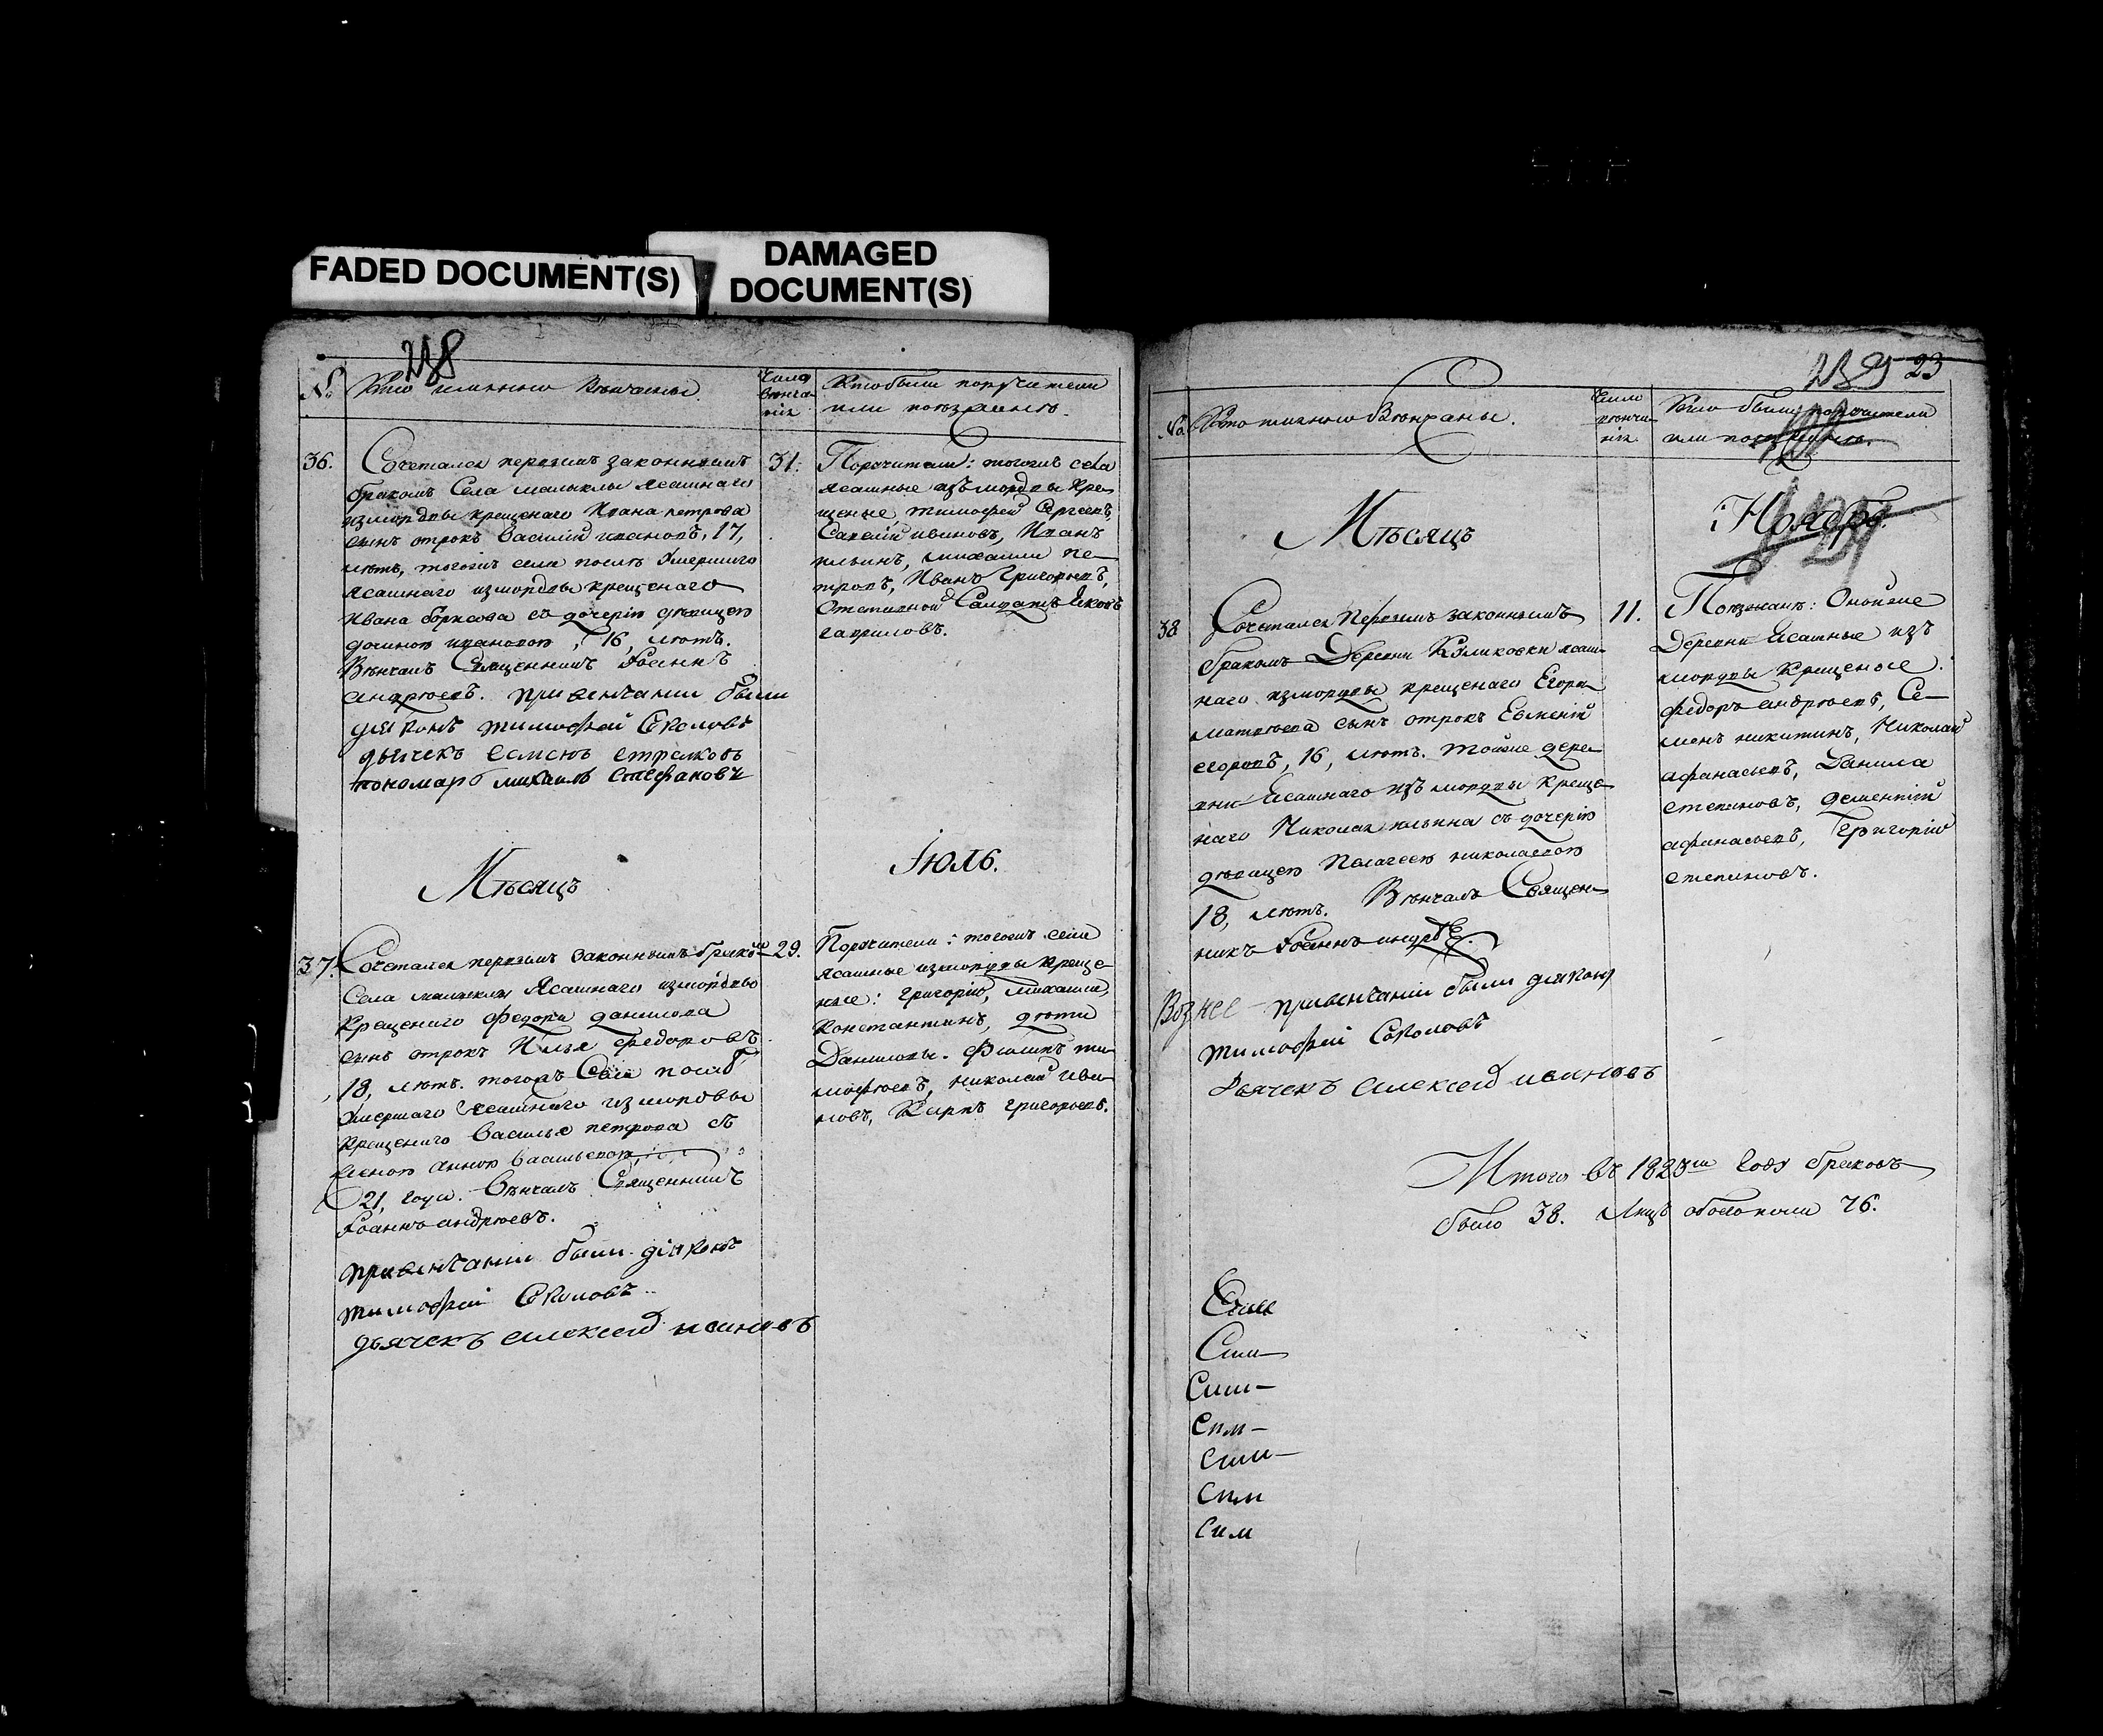 FADED DOCUMENT(S)
DAMAGED
DOCUMENT(S)
238
№ Кто именно венчаны.
Число
венча-
нія
Кто были поручители
или поезжаные.
36.
Сочетался первымъ законнымъ
бракомъ Села малыклы ясашнаго
измордвы крещенаго Ивана петрова
сынъ отрокъ Василий ивановъ, 17,
летъ, тогожъ села после Умершаго
ясашнаго измордвы крещенаго
Ивана борисова съ дочерію девицею
ивановою, 16, летъ.
Венчалъ Священникъ Іоаннъ
андреевъ. при венчании были
диаконъ тимофей Соколовъ
дьячекъ семенъ стрелковъ
пономарь михаилъ стефановъ
31.
Поручители: тогожъ села
ясашные изъ мордвы кре-
щеные тимофей Сергеевъ,
Савелий ивановъ, Иванъ
ильинъ, михаила пе-
тровъ, Иванъ Григорьевъ,
Отставной Салдатъ Яковъ
гавриловъ.
Месяцъ
Іюль.
37.
Сочетался первымъ законнымъ бракомъ
Села малыклы Ясашнаго измордвы
Крещенаго Федора данилова
сынъ отрокъ Илья федоровъ
18, летъ. тогожъ Села после
Умершаго Ясашнаго измордвы
Крещенаго Василья петрова съ
женою анною васильевою,
21, года. Венчалъ Священникъ
Іоаннъ андреевъ.
привенчании были діаконъ
тимофей Соколовъ
дьячекъ алексей ивановъ
29.
Поручители: тогожъ села
ясашные измордвы креще-
ные: григорій, михаила,
Константинъ, дети
Даниловы. Филипъ ти-
мофеевъ, николай ива-
новъ, Карпъ григорьевъ.
239 23
№ Кто именно Венчаны.
Число
венча-
нія
Кто были поручители
или поезжаные.
Месяцъ
Ноябрь.
38
Сочетался Первымъ законнымъ
бракомъ Деревни Куликовки ясаш-
наго измордвы крещенаго Егора
матвеева сынъ отрокъ Евгений
егоровъ, 16, летъ. тойже дере-
вни Ясашнаго изъ мордвы креще-
наго Николая ильина съ дочерію
девицею Пелагеею николаевою
18, летъ. Венчалъ Священ-
никъ Іоаннъ андре
привенчаніи были диаконъ
тимофей Соколовъ
дьячекъ алексей ивановъ
11.
Поезжаные: Онойже
Деревни Ясашные изъ
мордвы Крещеные:
федоръ андреевъ, Се-
менъ никитинъ, Николай
афанасьевъ, Данила
степановъ, дементий
афанасьевъ, Григорій
степановъ.
Итого въ 1823м Году браковъ
было 38. Лицъ обоего пола 76.
Сим
Сим
Сим
Сим
Сим
Сим